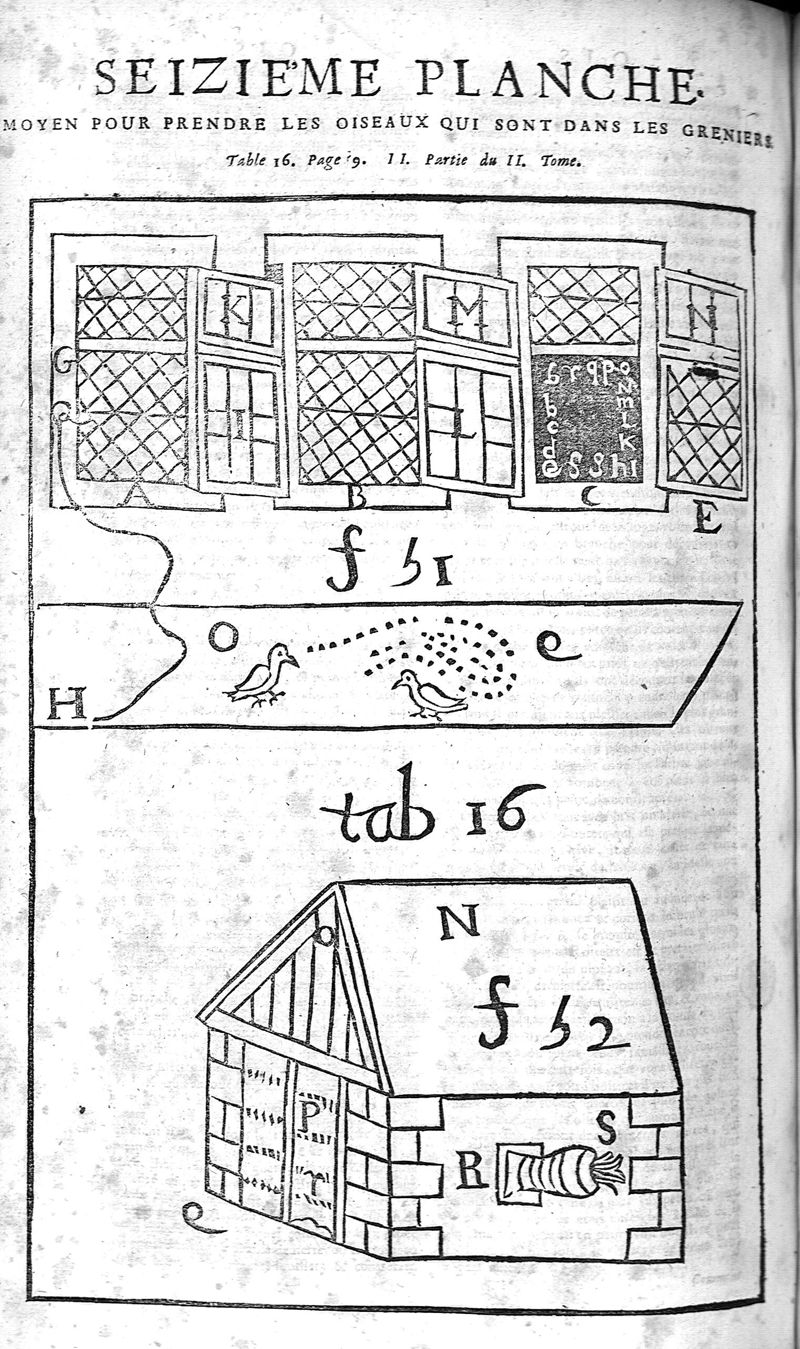 SEIZIEME PLANCHE.
MOYEN POUR PRENDRE LES OISEAUX QUI SONT DANS LES GRENIERS.
Table 16. Page 9. II. Partie du II. Tome.
K M N
G
I L
b r q P o
b n
c m
d L
e K
f g h I
A B C
E
f 51
O e
H
tab 16
N
o
f 52
P
S
R
T
e